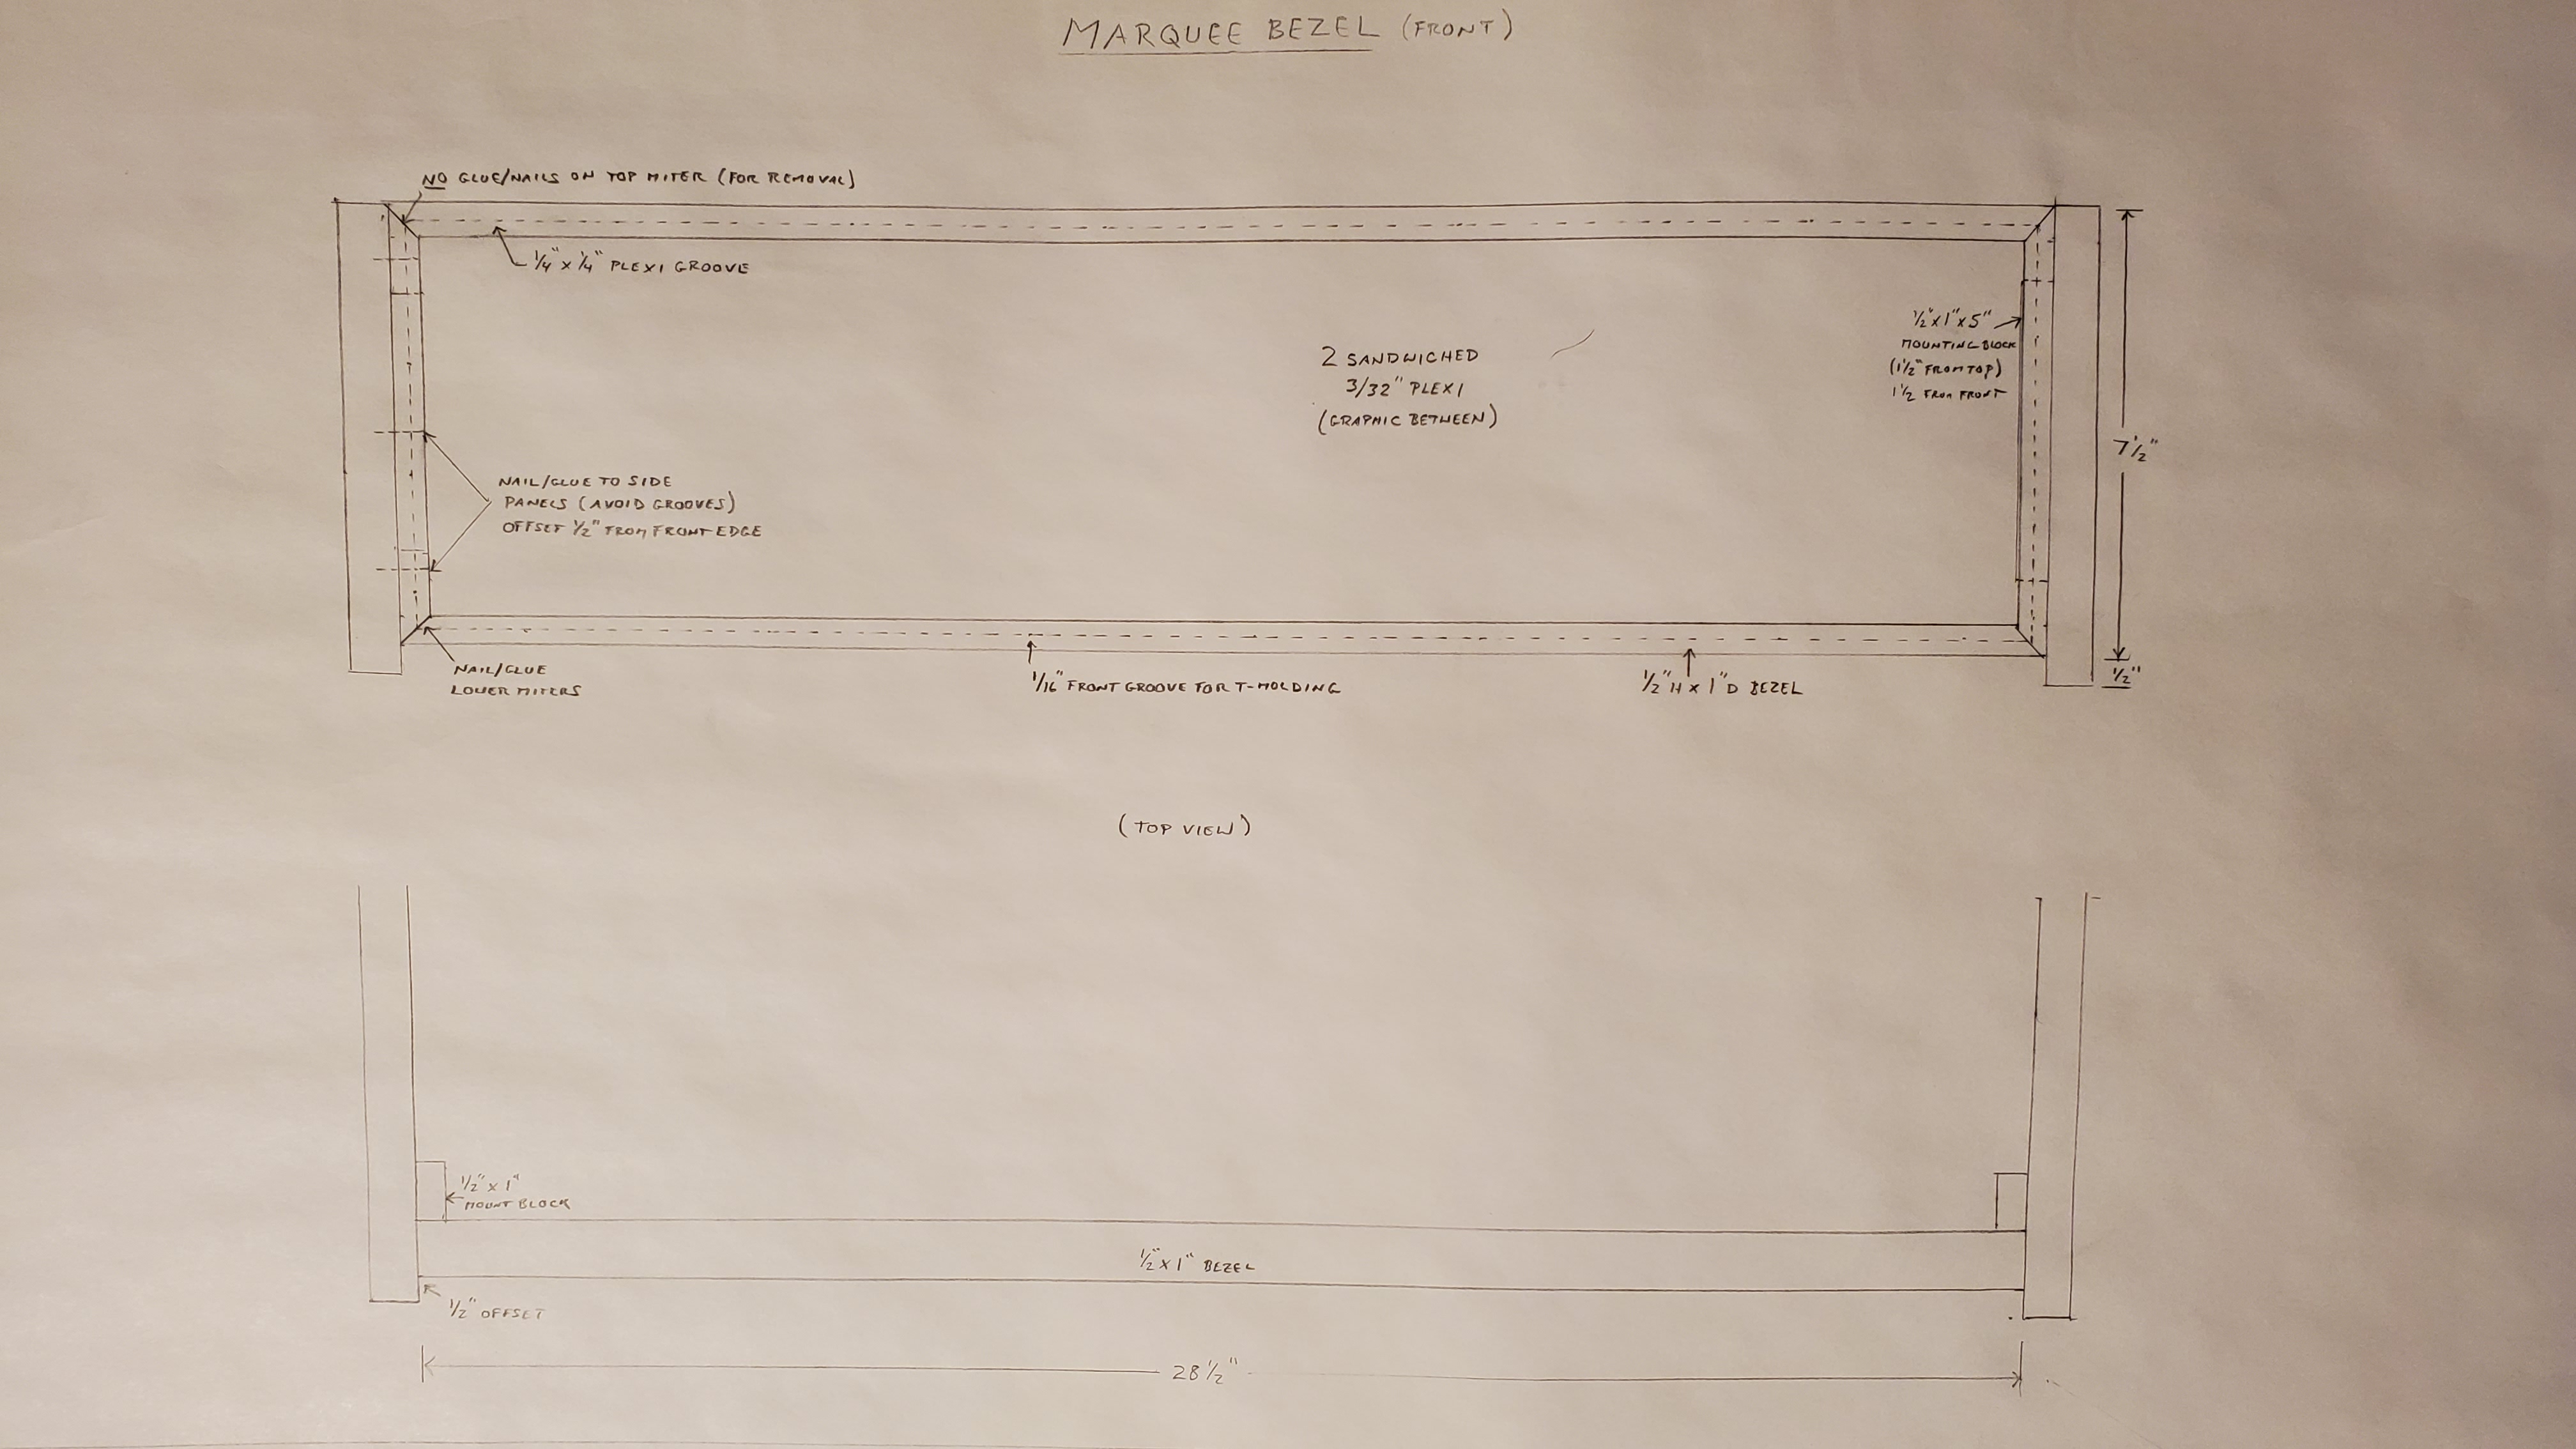 MARQUEE BEZEL (FRONT)
NO GLUE/NAILS ON TOP MITER (FOR REMOVAL)
1/4" x 1/4" PLEXI GROOVE
2 SANDWICHED
3/32" PLEXI
(GRAPHIC BETWEEN)
1/2"x1"x5"
MOUNTING BLOCK
(1 1/2" FROM TOP)
1 1/2 FROM FRONT
7 1/2"
NAIL/GLUE TO SIDE
PANELS (AVOID GROOVES)
OFFSET 1/2" FROM FRONT EDGE
NAIL/GLUE
LOWER MITERS
1/16" FRONT GROOVE FOR T-MOLDING
1/2"H x 1"D BEZEL
1/2"
(TOP VIEW)
1/2" x 1"
MOUNT BLOCK
1/2" x 1" BEZEL
1/2" OFFSET
28 1/2"